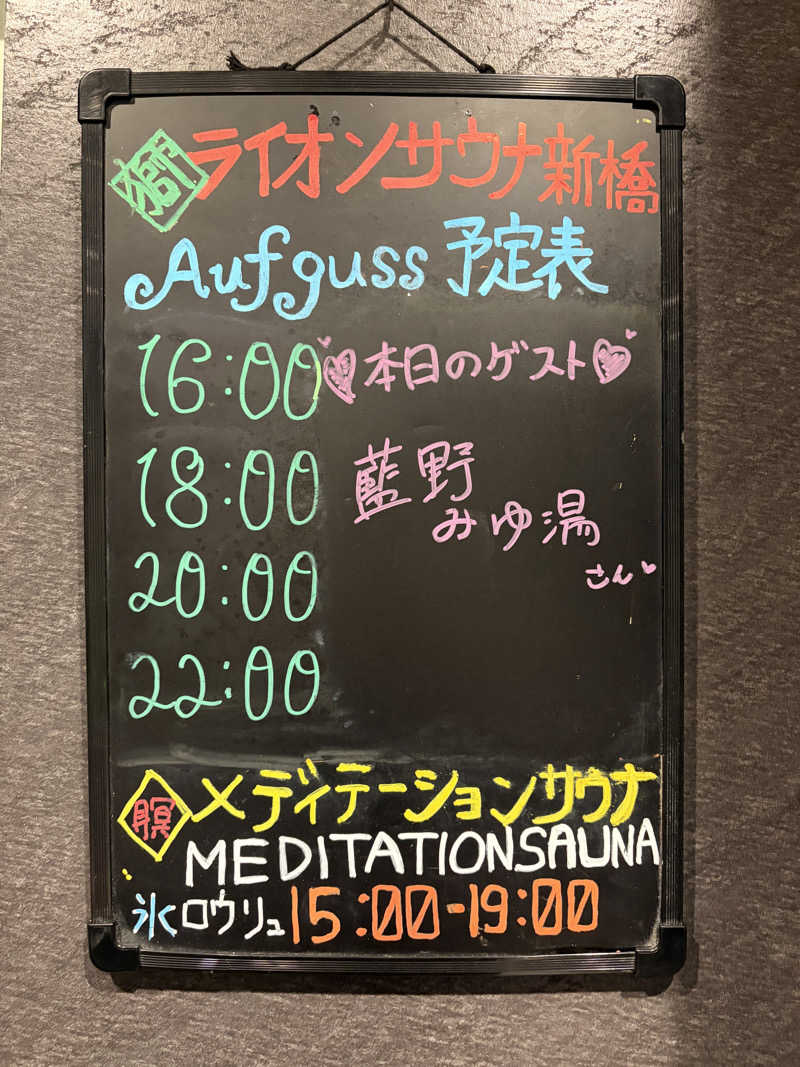 獅 ライオンサウナ新橋
Aufguss 予定表
16:00 本日のゲスト
18:00 藍野
みゆ湯
さん
20:00
22:00
瞑 メディテーションサウナ
MEDITATIONSAUNA
氷ロウリュ 15:00-19:00